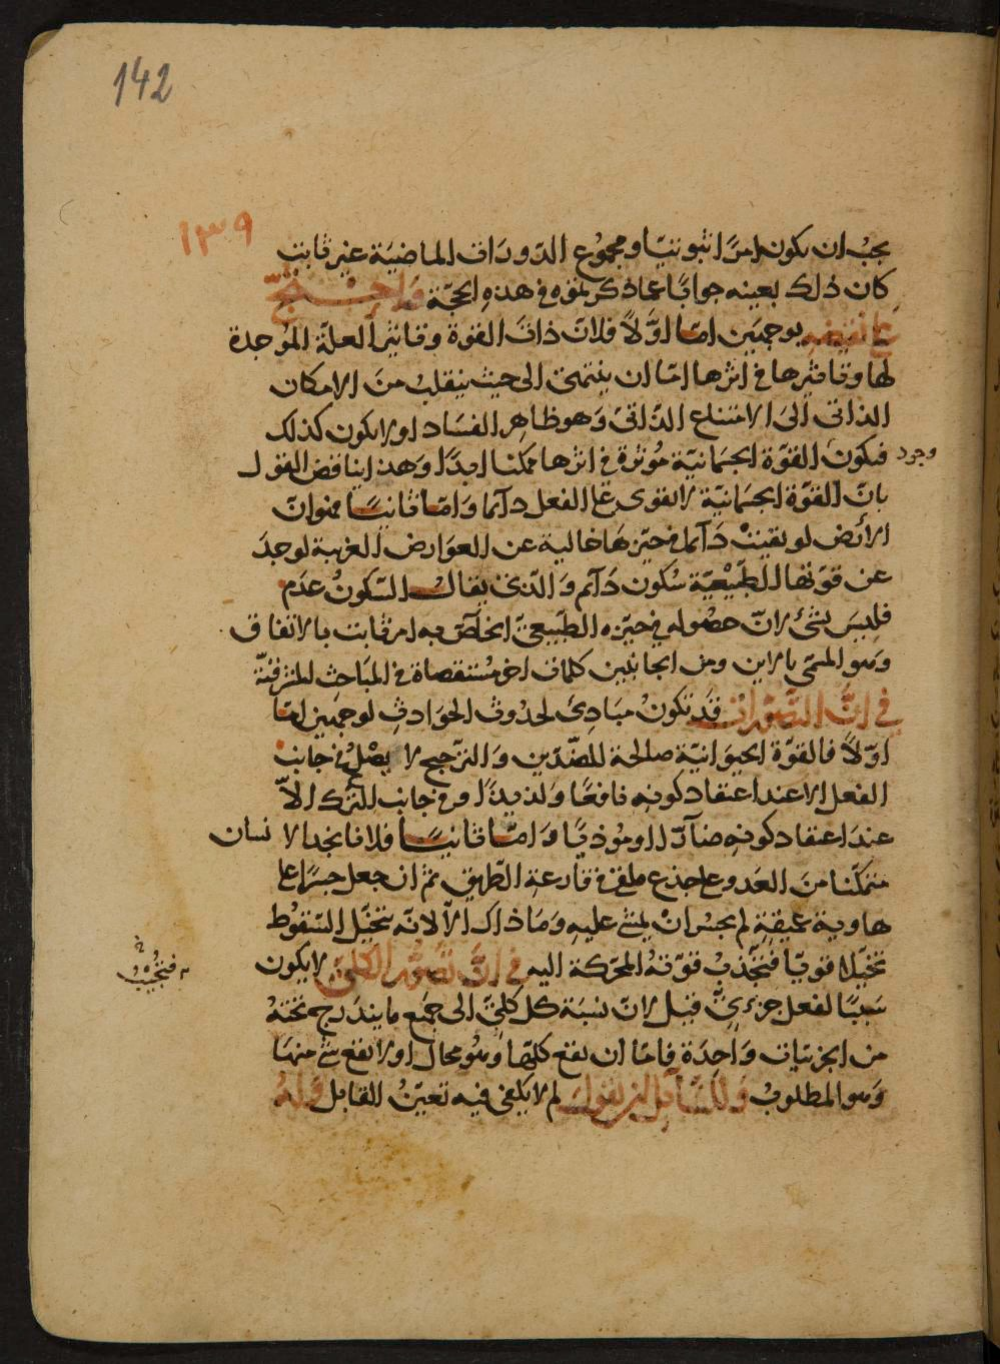 142
١٣٩
يجب ان يكون امرًا ثبوتيّا ومجموع الدّورات الماضيَة غير ثابت
كان ذلك بعينه جوابًا عما ذكرتموه في هذهِ الحجّة واحتجّ
على نقيضه بوجهَين امّا اوّلاً فلانّ ذات القوة وتاثير العلّة الموُجدة
لها وتاثيرها في اثرها امّا ان ينتهى الى حيث ينقلب منَ الامكان
الذاتى الىَ الامتناع الذّاتى وَهو ظاهِر الفسَاد او لا يكون كذلك
وجود
فيكون القوّة الجسمَانيّة مُوثرة في اثرها ممكنا ابدًا وَهذا يناقض القول
بانّ القوّة الجسَمانيّة لا تقوى على الفعل دآئما وَامّا ثانيًا فهوانّ
الارض لو بقيتْ دَآئما في حيّزهَا خالية عن العوَارض الغريبة لوجدَ
عن قوّتها الطّبيْعيّة سُكون دَآئم وَالذّى يقالُ السّكونُ عدَم
فليسَ بشئ لانّ حصُوله في حيّزه الطّبيعىّ الخاصّ به امر ثابت بالاتفاق
وَهو المسمّى بالاين ومن الجانبَين كلمات اخر مُستقصاة في المبَاحِث المشرقيّة
في انّ التّصوّرات قَد تكونُ مبَادِئ لحدُوث الحوَادثِ لوجهَين امّا
اوّلاً فالقوّة الحيوَانيّة صالحة للضّدّين وَالترّجيح لا يحصْلُ في جانب
الفعل الا عند اعتقاد كونهِ نافعًا وَلذيذًا وفي جانب الترّك الاّ
عندَ اعتقاد كونهِ ضآرّا او موُذيًا وَامّا ثانيًا فلانا نجد الانسان
متمكّنا منَ العَدو على جذع ملقى في قارعة الطّريق ثم ان جعل جسرًا على
هاوية عميقةِ لم يجسُر انْ يمشى عليهِ وَمَا ذاك الاّ لانّه تخيّل السّقوُط
تخيّلا قويّا فتنجّذبُ قوّتهُ المحرّكة اليه في انّ تصوّر الكلىّ لا يكون
فتجيب
سَببًا لفعل جزءىٍّ قيل لانّ نسبَة كل كلىّ الى جميَع ما يندَرج تحتهُ
من الجزئيات وَاحِدَة فامّا ان يقع كلّها وَهو محال او لا يقع شئ منهَا
وَهو المطلوبُ وَللسّآئل ان يقولَ لم لا يكفى فيه تعيّنُ القابل وَلهُ